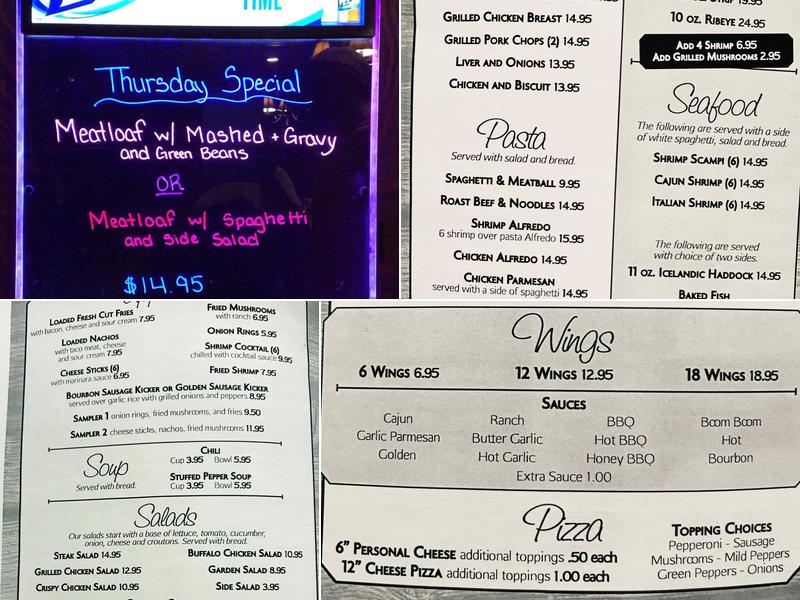 TIME
Thursday Special
Meatloaf w/ Mashed + Gravy
and Green Beans
OR
Meatloaf w/ Spaghetti
and Side Salad
$14.95
Grilled Chicken Breast 14.95
Grilled Pork Chops (2) 14.95
Liver and Onions 13.95
Chicken and Biscuit 13.95
Pasta
Served with salad and bread.
Spaghetti & Meatball 9.95
Roast Beef & Noodles 14.95
Shrimp Alfredo
6 shrimp over pasta Alfredo 15.95
Chicken Alfredo 14.95
Chicken Parmesan
served with a side of spaghetti 14.95
10 oz. Ribeye 24.95
Add 4 Shrimp 6.95
Add Grilled Mushrooms 2.95
Seafood
The following are served with a side
of white spaghetti, salad and bread.
Shrimp Scampi (6) 14.95
Cajun Shrimp (6) 14.95
Italian Shrimp (6) 14.95
The following are served
with choice of two sides.
11 oz. Icelandic Haddock 14.95
Baked Fish
Loaded Fresh Cut Fries
with bacon, cheese and sour cream 7.95
Loaded Nachos
with taco meat, cheese
and sour cream 7.95
Cheese Sticks (6)
with marinara sauce 6.95
Fried Mushrooms
with ranch 6.95
Onion Rings 5.95
Shrimp Cocktail (6)
chilled with cocktail sauce 9.95
Fried Shrimp 7.95
Bourbon Sausage Kicker or Golden Sausage Kicker
served over garlic rice with grilled onions and peppers 8.95
Sampler 1 onion rings, fried mushrooms, and fries 9.50
Sampler 2 cheese sticks, nachos, fried mushrooms 11.95
Soup
Served with bread.
Chili
Cup 3.95 Bowl 5.95
Stuffed Pepper Soup
Cup 3.95 Bowl 5.95
Salads
Our salads start with a base of lettuce, tomato, cucumber,
onion, cheese and croutons. Served with bread.
Steak Salad 14.95
Buffalo Chicken Salad 10.95
Grilled Chicken Salad 12.95
Garden Salad 8.95
Crispy Chicken Salad 10.95
Side Salad 3.95
Wings
6 Wings 6.95
12 Wings 12.95
18 Wings 18.95
Sauces
Cajun Ranch BBQ Boom Boom
Garlic Parmesan Butter Garlic Hot BBQ Hot
Golden Hot Garlic Honey BBQ Bourbon
Extra Sauce 1.00
Pizza
6" Personal Cheese additional toppings .50 each
12" Cheese Pizza additional toppings 1.00 each
Topping Choices
Pepperoni - Sausage
Mushrooms - Mild Peppers
Green Peppers - Onions